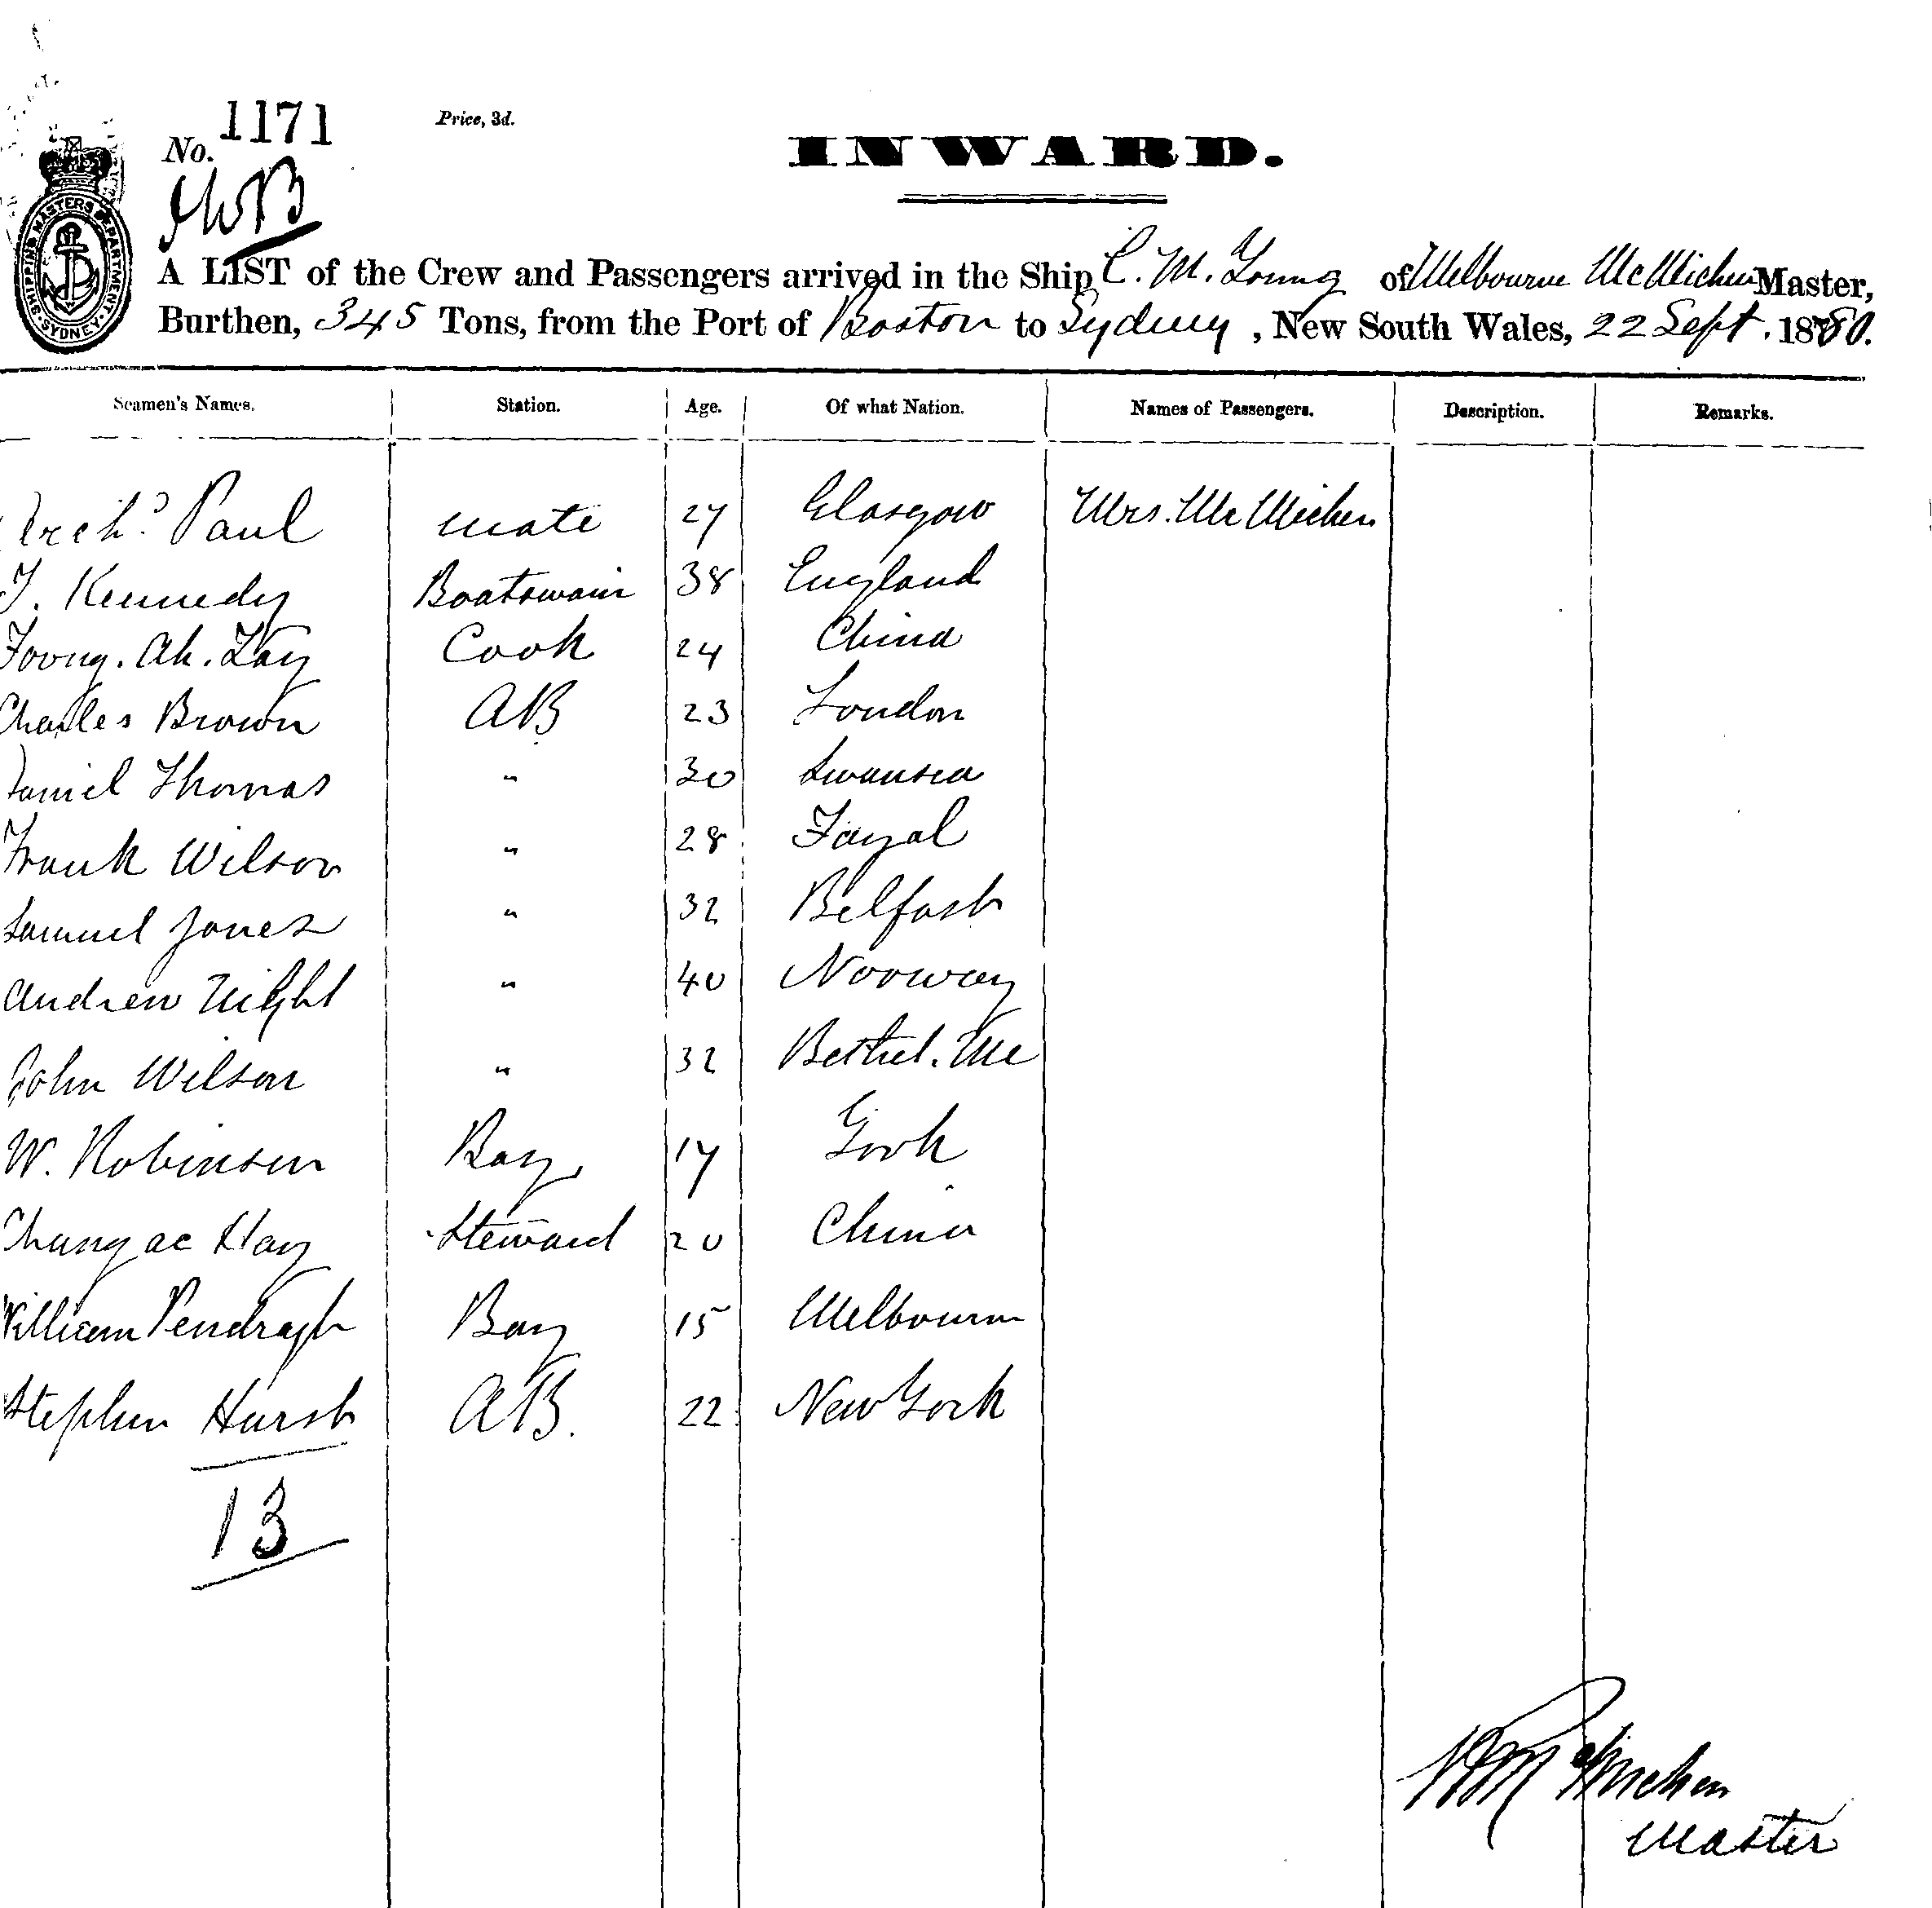 No. 1171 Price, 3d.
INWARD.
SHIPPING MASTERS DEPARTMENT. SYDNEY.
A LIST of the Crew and Passengers arrived in the Ship C. M. Young of Melbourne McMicken Master,
Burthen, 345 Tons, from the Port of Boston to Sydney, New South Wales, 22 Sept. 1880.
Seamen's Names. Station. Age. Of what Nation. Names of Passengers. Description. Remarks.
Archd. Paul mate 27 Glasgow Mrs. McMicken
T. Kennedy Boatswain 38 England
Foong. Ah. Kay Cook 24 China
Charles Brown AB 23 London
Daniel Thomas " 30 Swansea
Frank Wilson " 28 Fayal
Samuel Jones " 32 Belfast
Andrew " 40 Norway
John Wilson " 32 Bethel. Me
W. Robinson Boy 17 York
Steward 20 China
William Boy 15 Melbourne
Stephen Hursh AB. 22 New York
13
McMicken
Master